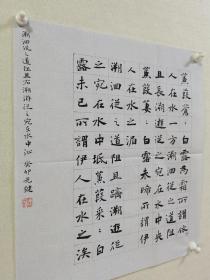 蒹葭蒼〻白露為霜所謂伊
人在水一方溯洄從之道阻
且長溯遊從之宛在水中央
蒹葭萋〻白露未晞所謂伊
溯洄從之道阻且躋溯遊從
之宛在水中坻蒹葭采〻白
露未已所謂伊人在水之涘
溯洄從之道阻且右溯游從之宛在水中沚 癸卯